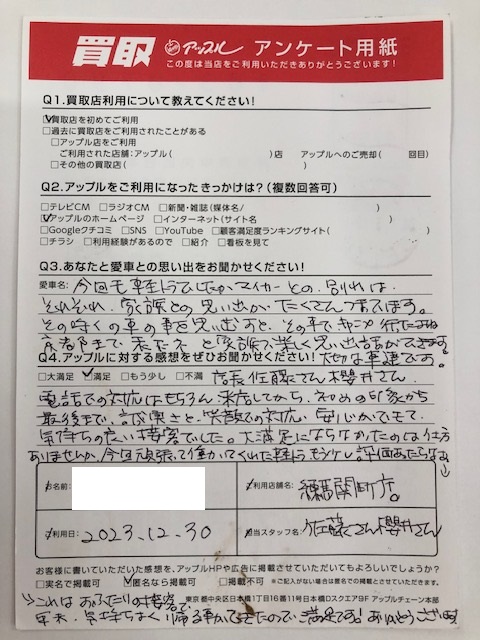 買取 アップル アンケート用紙
この度は当店をご利用いただきありがとうございます!
Q1.買取店利用について教えてください!
☑買取店を初めてご利用
□過去に買取店をご利用されたことがある
□アップル店をご利用
ご利用された店舗:アップル( )店 アップルへのご売却( 回目)
□その他の買取店( )
Q2.アップルをご利用になったきっかけは?(複数回答可)
□テレビCM □ラジオCM □新聞・雑誌(媒体名/ )
☑アップルのホームページ □インターネット(サイト名 )
□Googleクチコミ □SNS □YouTube □顧客満足度ランキングサイト( )
□チラシ □利用経験があるので □紹介 □看板を見て
Q3.あなたと愛車との思い出をお聞かせください!
愛車名: 今回も軽トラでしたがマイカーとの別れは
それぞれ、家族との思い出が、たくさんつまってます。
その時々の車の事を思い出すと、その車で、キャンプ行ったよね
京都まで 家族で楽しく思い出话
Q4.アップルに対する感想をぜひお聞かせください! 大切な車達です。
□大満足 ☑満足 □もう少し □不満 店長佐藤さん櫻井さん
電話での対応はもちろん、来店してから、初めの印象から
最後まで、誠実さと、笑顔での対応、安心ができて、
気持ちの良い接客でした。大満足にならなかったのは仕方
ありませんが、今日頑張って働いてくれた軽トラもう少し評価あったらなぁ〜
お名前:
ご利用店舗名: 練馬関町店
ご利用日: 2023.12.30
担当スタッフ名: 佐藤さん櫻井さん
お客様に書いていただいた感想を、アップルHPや広告に掲載させていただいてもよろしいでしょうか?
□実名で掲載可 ☑匿名なら掲載可 □掲載不可 ※ご記入がない場合は匿名での掲載とさせていただきます。
東京都中央区日本橋1丁目16番11号日本橋Dスクエア9F アップルチェーン本部
これはおふたりの接客で
年末、気持ちよく帰る事ができたので満足です!ありがとうございます